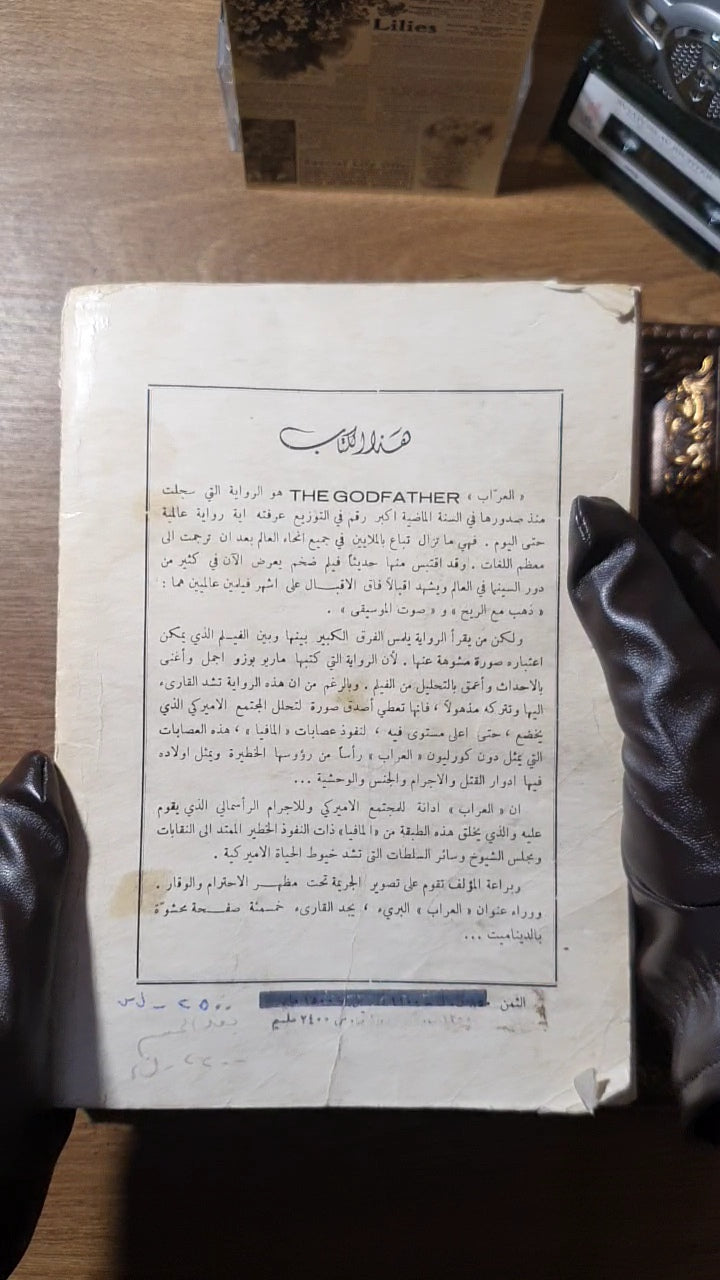 Lilies
هذا الكتاب
« العرّاب » THE GODFATHER هو الرواية التي سجلت
منذ صدورها في السنة الماضية اكبر رقم في التوزيع عرفته اية رواية عالمية
حتى اليوم . فهي ما تزال تباع بالملايين في جميع انحاء العالم بعد ان ترجمت الى
معظم اللغات . وقد اقتبس منها حديثاً فيلم ضخم يعرض الآن في كثير من
دور السينما في العالم ويشهد اقبالاً فاق الاقبـــال على اشهر فيلمين عالميين هما :
« ذهب مع الريح » و « صوت الموسيقى » .
ولكن من يقرأ الرواية يلمس الفرق الكبير بينها وبين الفيـلم الذي يمكن
اعتباره صورة مشوهة عنها . لأن الرواية التي كتبها ماريو بوزو اجمل وأغنى
بالاحداث وأعمق بالتحليل من الفيلم . وبالرغم من ان هذه الرواية تشد القارىء
اليها وتتركه مذهولاً ، فانها تعطي أصدق صورة لتحلل المجتمع الاميركي الذي
يخضع ، حتى اعلى مستوى فيه ، لنفوذ عصابات « المافيا » ، هذه العصابات
التي يمثل دون كورليون « العراب » رأساً من رؤوسها الخطيرة ويمثل اولاده
فيها ادوار القتل والاجرام والجنس والوحشية ...
ان « العراب » ادانة للمجتمع الاميركي وللاجرام الرأسمالي الذي يقوم
عليه والذي يخلق هذه الطبقة من «المافيا» ذات النفوذ الخطير الممتد الى النقابات
ومجلس الشيوخ وسائر السلطات التي تشد خيوط الحياة الاميركية .
وبراعة المؤلف تقوم على تصوير الجريمة تحت مظهـــر الاحترام والوقار .
ووراء عنوان « العراب » البريء ، يجد القارىء خمسمئة صفـــحة محشوّة
بالديناميت ...
الثمن
٢٥٠٠ - ل.س
٢٤٠٠ مليم